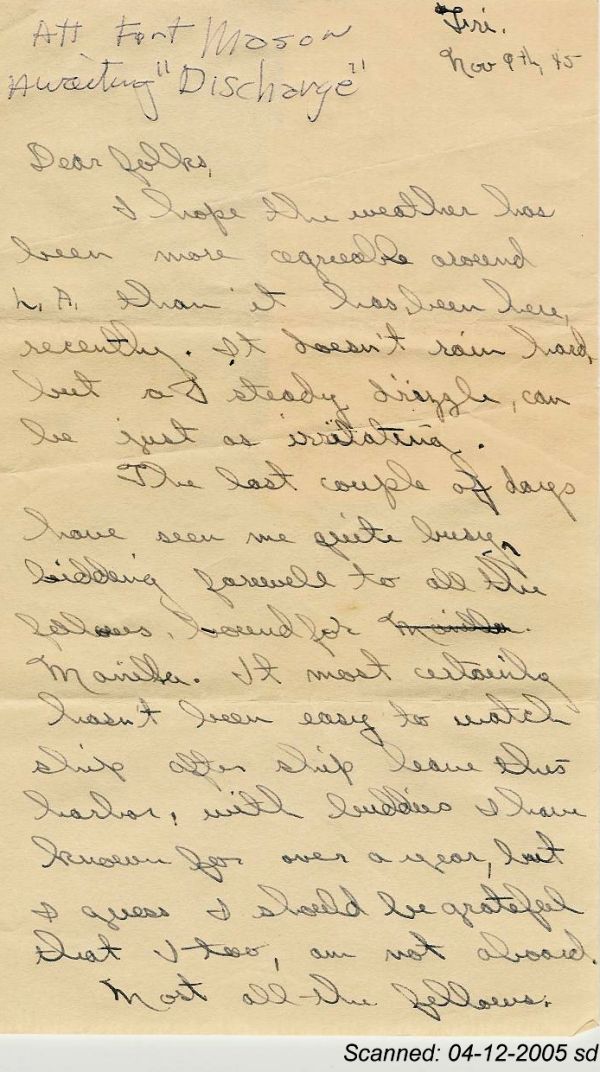 Att Fort Mason
Awaiting "Discharge"
Fri.
Nov 9th, 45
Dear folks,
I hope the weather has
been more agreeable around
L.A. than it has been here,
recently. It doesn't rain hard,
but a steady drizzle, can
be just as irritating.
The last couple of days
have seen me quite busy,
bidding farewell to all the
fellows, bound for Manilla.
Manilla. It most certainly
hasn't been easy to watch
ship after ship leave this
harbor, with buddies I have
known for over a year, but
I guess I should be grateful
that I too, am not aboard.
Most all the fellows.
Scanned: 04-12-2005 sd